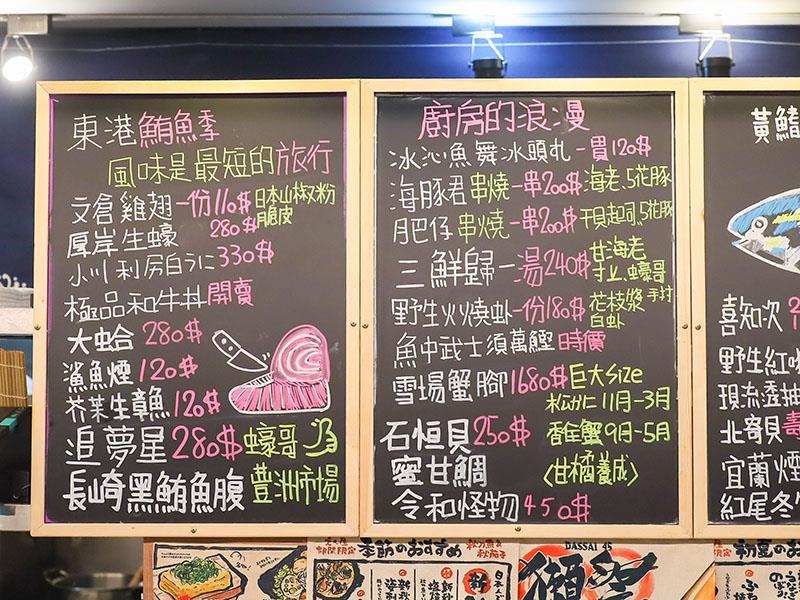 東港鮪魚季
風味是最短的旅行
文倉雞翅一份110$ 日本山椒粉 脆皮
厚岸生蠔 280$
小川利尻白うに330$
極品和牛丼開賣
大蚫 280$
鯊魚煙 120$
芥菜生章魚 120$
追夢星280$ 蠔哥
長崎黑鮪魚腹 豊洲市場
廚房的浪漫
冰沁魚舞冰頭丸一買120$
海豚君 串燒一串200$ 海老、5花豚
肥仔 串燒一串200$ 干貝起司、5花豚
三鮮歸一湯240$ 甘海老 寸止、蠔哥
野生火火燒蚍一份180$ 花枝漿 手打 白蚍
魚中武士須萬鰹 時價
雪場蟹腳1680$ 巨大size
松かに 11月-3月
石恒貝 250$ 香住蟹9月-5月
蜜甘鯛 〈甘橘養成〉
令和怪物 450$
黃鰭
喜知次
野生紅
現流透抽
北寄貝
宜蘭煙
紅尾冬
季節のおすすめ
DASSAI 45
獺祭
初夏のお